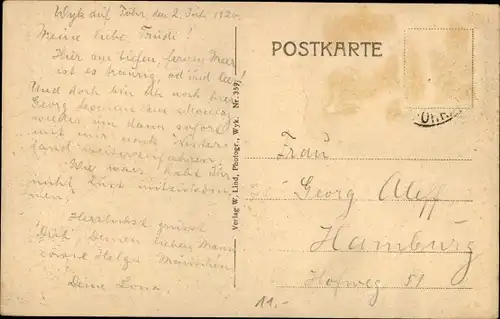 Wyk auf Föhr, den 2. Juli 1920.
Meine liebe Trudi!
Hier am tiefen fernen Meer
ist es traurig, öd und leer!
Und doch bin ich noch hier
Georg
wieder um dann sofort
mit mir nach
land weiterzufahren,
Wie wär's, habt Ihr
nicht Lust mitzukommen
men,
Herzlichst grüsst
Dich, Deinen lieben Mann
sowie Helga
Deine Lona.
Verlag W. Lind, Photogr., Wyk. Nr. 359
POSTKARTE
Frau
Georg Aleff
Hamburg
Hofweg 51
11.-